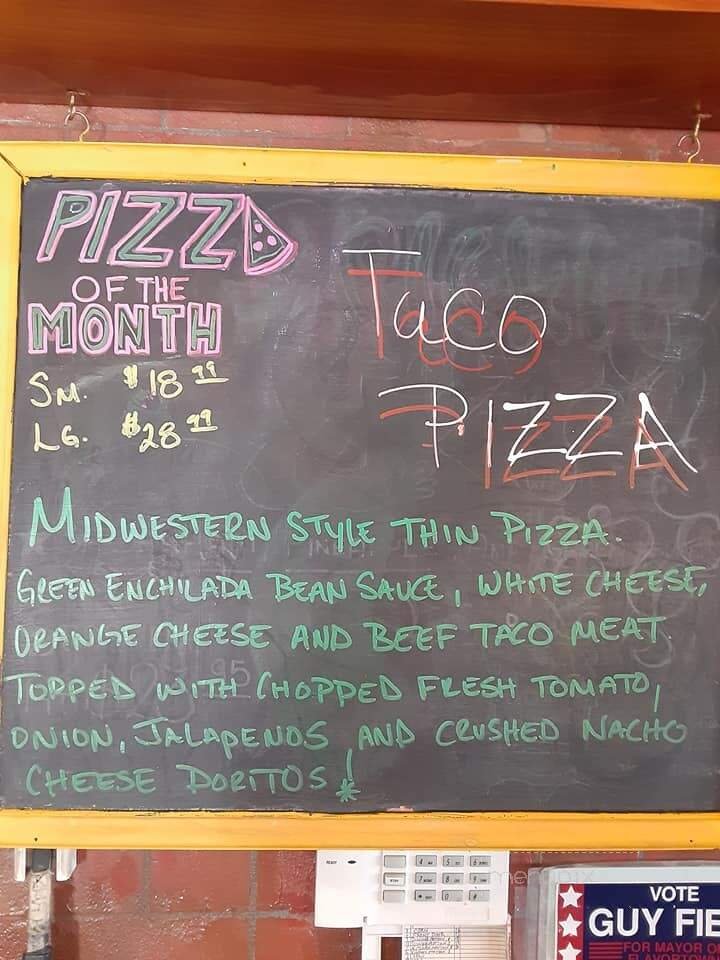 PIZZA
OF THE
MONTH
SM. $18 99
LG. $28 99
TACO
PIZZA
MIDWESTERN STYLE THIN PIZZA.
GREEN ENCHILADA BEAN SAUCE, WHITE CHEESE,
ORANGE CHEESE AND BEEF TACO MEAT.
TOPPED WITH CHOPPED FRESH TOMATO,
ONION, JALAPENOS AND CRUSHED NACHO
CHEESE DORITOS!
VOTE
GUY FIE
FOR MAYOR O
FLAVORTOWN